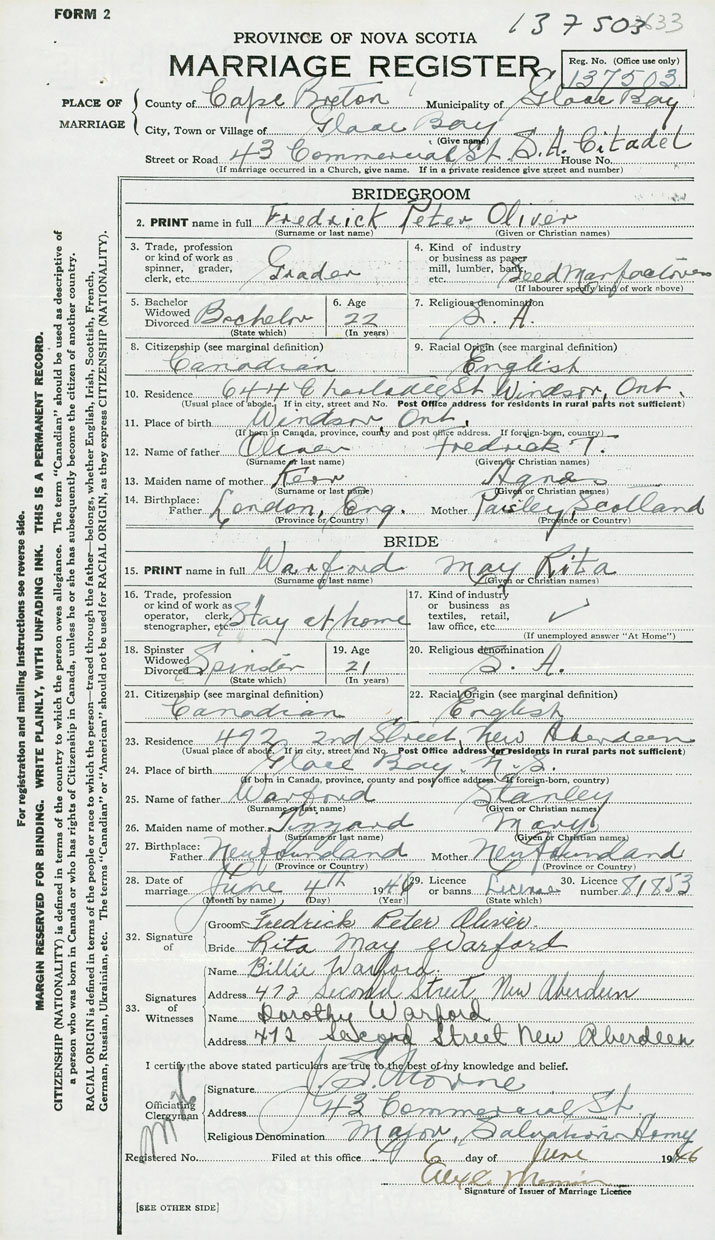 FORM 2
137503
PROVINCE OF NOVA SCOTIA
MARRIAGE REGISTER
Reg. No. (Office use only)
137503
PLACE OF MARRIAGE
County of Cape Breton Municipality of Glace Bay
City, Town or Village of Glace Bay
(Give name)
Street or Road 43 Commercial St. S.A. Citadel House No.
(If marriage occurred in a Church, give name. If in a private residence give street and number)
BRIDEGROOM
2. PRINT name in full Fredrick Peter Oliver
(Surname or last name) (Given or Christian names)
3. Trade, profession or kind of work as spinner, grader, clerk, etc. Grader
4. Kind of industry or business as paper mill, lumber, bank etc. Seed
(If labourer specify kind of work above)
5. Bachelor Widowed Divorced Bachelor
(State which)
6. Age 22
(In years)
7. Religious denomination S. A.
8. Citizenship (see marginal definition) Canadian
9. Racial Origin (see marginal definition) English
10. Residence 644 St Windsor, Ont.
(Usual place of abode. If in city, street and No. Post Office address for residents in rural parts not sufficient)
11. Place of birth Windsor, Ont.
(If born in Canada, province, county and post office address. If foreign-born, country)
12. Name of father Oliver Fredrick T.
(Surname or last name) (Given or Christian names)
13. Maiden name of mother Kerr Agnes
(Surname or last name) (Given or Christian names)
14. Birthplace: Father London, Eng. Mother Paisley, Scotland
(Province or Country) (Province or Country)
BRIDE
15. PRINT name in full Warford May Rita
(Surname or last name) (Given or Christian names)
16. Trade, profession or kind of work as operator, clerk, stenographer, etc. Stay at home
17. Kind of industry or business as textiles, retail, law office, etc. ✓
(If unemployed answer "At Home")
18. Spinster Widowed Divorced Spinster
(State which)
19. Age 21
(In years)
20. Religious denomination S. A.
21. Citizenship (see marginal definition) Canadian
22. Racial Origin (see marginal definition) English
23. Residence 472 2nd Street, New Aberdeen
(Usual place of abode. If in city, street and No. Post Office address for residents in rural parts not sufficient)
24. Place of birth Glace Bay. N.S.
(If born in Canada, province, county and post office address. If foreign-born, country)
25. Name of father Warford Stanley
(Surname or last name) (Given or Christian names)
26. Maiden name of mother Mary
(Surname or last name) (Given or Christian names)
27. Birthplace: Father Newfoundland Mother Newfoundland
(Province or Country) (Province or Country)
28. Date of marriage June 4th 1946
(Month by name) (Day) (Year)
29. Licence or banns License
(State which)
30. Licence number 81853
32. Signature of
Groom Fredrick Peter Oliver.
Bride Rita May Warford
33. Signatures of Witnesses
Name Billie Warford.
Address 472 Second Street, New Aberdeen
Name Dorothy Warford
Address 472 Second Street New Aberdeen
I certify the above stated particulars are true to the best of my knowledge and belief.
Officiating Clergyman
Signature J. S.
Address 43 Commercial St.
Religious Denomination Major, Salvation Army
Registered No. Filed at this office 6 day of June 1946
Signature of Issuer of Marriage Licence
[SEE OTHER SIDE]
For registration and mailing instructions see reverse side.
MARGIN RESERVED FOR BINDING. WRITE PLAINLY, WITH UNFADING INK. THIS IS A PERMANENT RECORD.
CITIZENSHIP (NATIONALITY) is defined in terms of the country to which the person owes allegiance. The term "Canadian" should be used as descriptive of
a person who was born in Canada or who has rights of Citizenship in Canada, unless he or she has subsequently become the citizen of another country.
RACIAL ORIGIN is defined in terms of the people or race to which the person—traced through the father—belongs, whether English, Irish, Scottish, French,
German, Russian, Ukrainian, etc. The terms "Canadian" or "American" should not be used for RACIAL ORIGIN, as they express CITIZENSHIP (NATIONALITY).